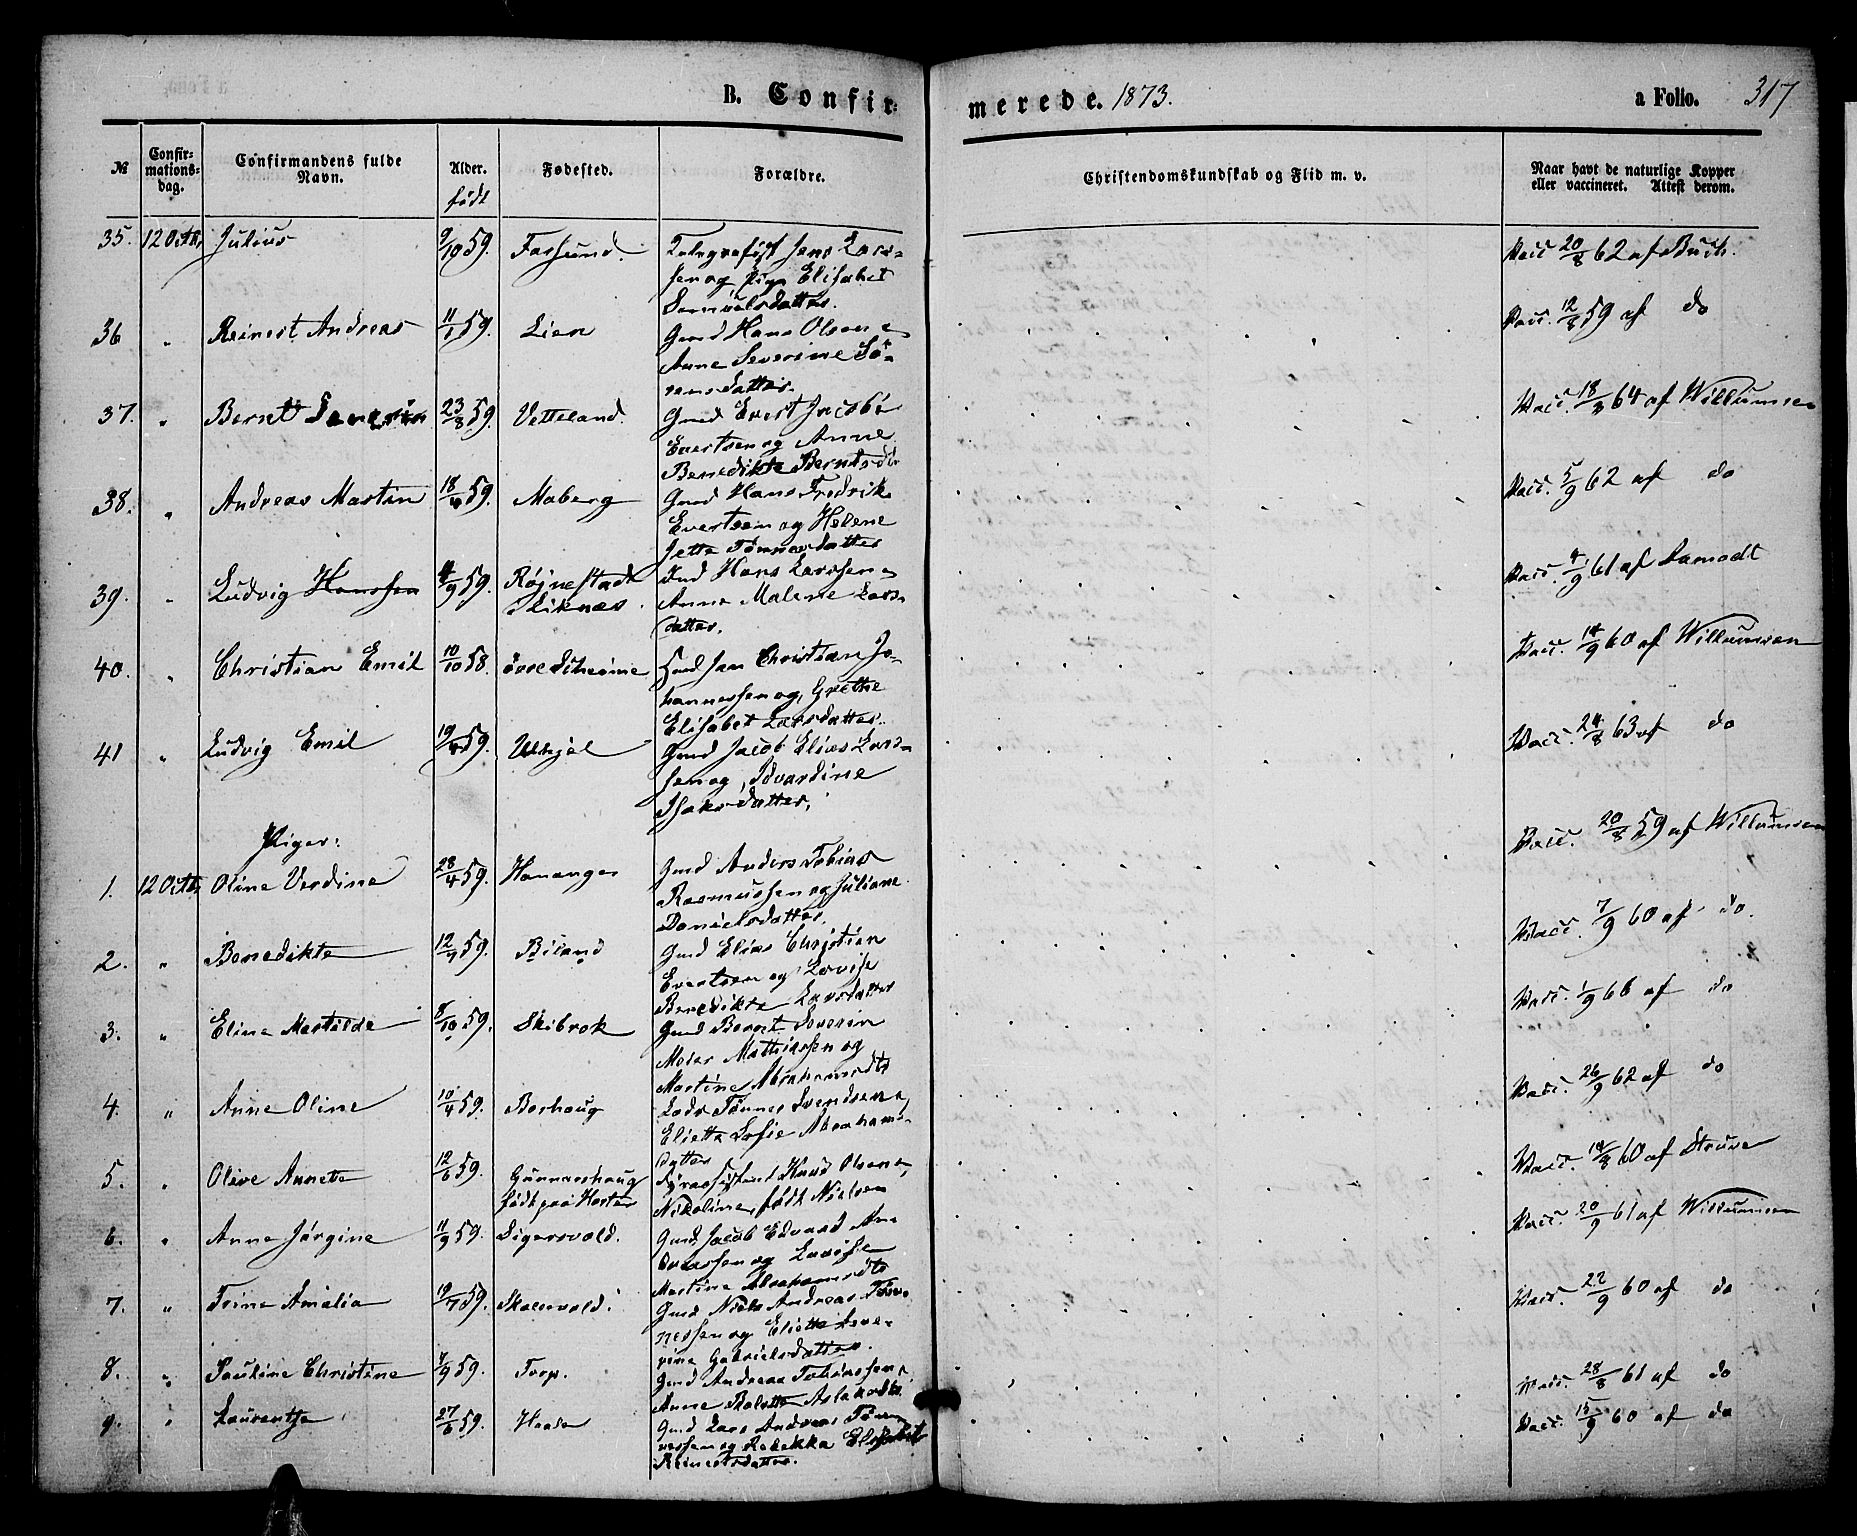 B. Confir-
merede. 1873.
a Folio. 317
№
Confir-
mations-
dag.
Confirmandens fulde
Navn.
Alder.
født
Fødested.
Forældre.
Christendomskundskab og Flid m. v.
Naar havt de naturlige Kopper
eller vaccineret. Attest derom.
35. 12 Octb. Julius 9/10 59. Farsund. Jens Lars-
sen og Pige Elisabet
Samuelsdatter.
Vacc. 20/8 62 af Buch.
36 " Reinert Andreas 11/1 59. Lien Gmd Hans Olsen &
Anne Severine Sø-
rensdatter.
Vacc. 12/8 59 af do
37. " Bernt Severin 23/8 59. Vetteland. Gmd Evert Jacob
Evertsen og Anne
Benedikte Berntsdtr
Vacc. 18/3 64 af Willumsen
38. " Andreas Martin 18/6 59. Maberg Gmd Hans Fredrik
Evertsen og Helene
Jette Tønnesdatter
Vacc. 5/9 62 af do
39. " Ludvig Hanssen 4/9 59. Røjnestad
i Liknes. Hans Larssen &
Anne Malene Lars-
datter.
Vacc. 4/9 61 af Aamodt
40. " Christian Emil 10/10 58. Gmd Jan Christian Jo-
hannessen og Grethe
Elisabet Larsdatter.
Vacc. 14/9 60 af Willumsen
41 " Ludvig Emil 19/4 59. Gmd Jacob Elias Lars-
sen og Edvardine
Isaksdatter.
Vacc. 24/8 63 af do
Piger:
1. 12 Octb. Oline Verdine 28/4 59. Hananger Gmd Anders Tobias
Rasmussen og Juliane
Danielsdatter.
Vacc. 20/8 59 af Willumsen
2. " Benedikte 12/7 59. Biland Gmd Elias Christian
Evertsen og Lovise
Benedikte Larsdatter
Vacc. 7/9 60 af do.
3. " Eline Mathilde 8/10 59. Skibrok Gmd Bernt Severin
Meier Mathiassen og
Martine Abrahamsdtr
Vacc. 1/9 66 af do
4. " Anne Oline 10/4 59. Borhaug Lods Tønnes Svendsen &
Eliette Sofie Abrahams-
datter
Vacc. 26/9 62 af do
5. " Olive Annette 12/6 59. Gunnarshaug
født paa Fyrassistent Knud Olsen &
Nikoline, født Nielsen
Vacc. 14/8 60 af Struve
6. " Anne Jørgine 11/9 59. Sigersvold. Gmd Jacob Edvard An-
dreassen og Lovise
Martine Abrahamsdtr
Vacc. 20/9 61 af Willumsen
7. " Trine Amalia 19/7 59. Skeisvold. Gmd Niels Andreas Tøn-
nessen og Eliette Seve-
rine Gabrielsdatter.
Vacc. 22/9 60 af do
8. " Pauline Christine 4/9 59. Torp. Gmd Andreas Tobiassen &
Anne Malette Aslaksdtr
Vacc. 28/8 61 af do
9. " Laurentse 27/6 59. Gmd Lars Andreas Tøn-
nessen og Rebekka Elisabet
Reinertsdatter.
Vacc. 15/9 60 af do